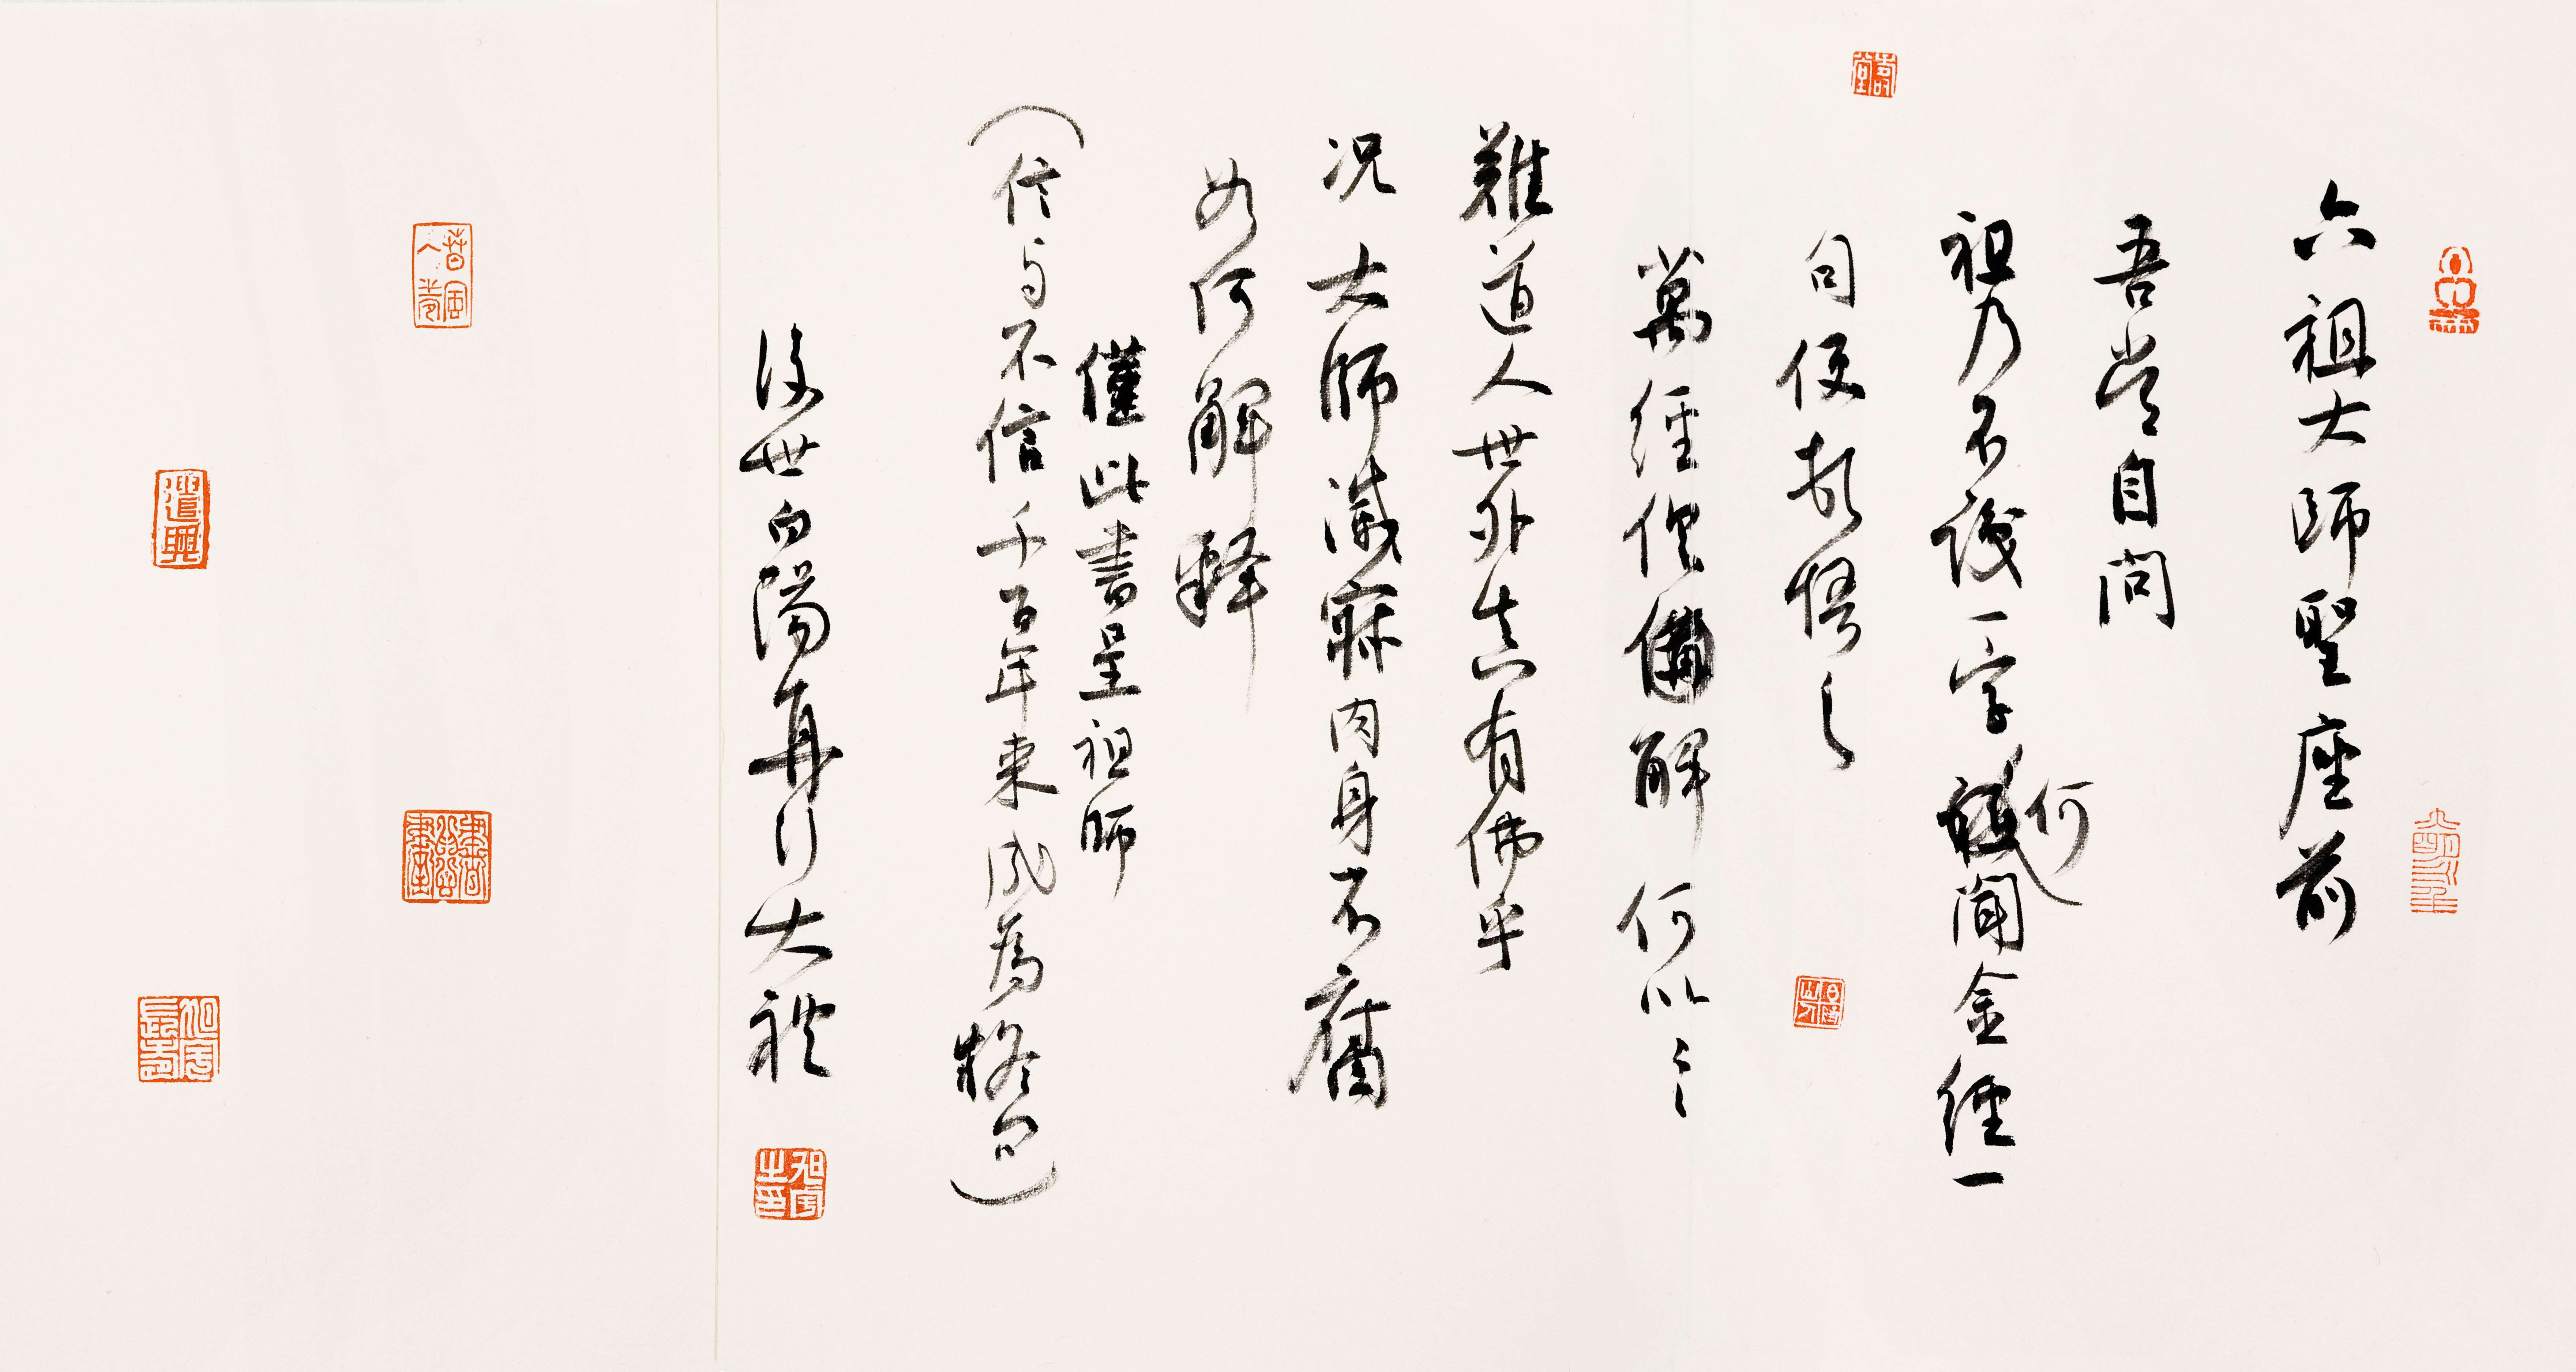 六祖大師聖座前
吾常自問
祖乃不識一字何聞金經一
句便頓悟之
萬經僅備解何以之
難道人世外真有佛乎
况大師滅寂肉身不腐
如何解釋
僅此書呈祖師
（信与不信千百年来成為格
後世向陽再行大礼
遣興